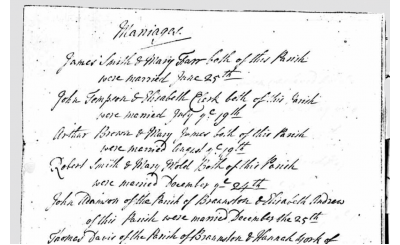 Marriages.
James Smith & Mary Farr both of this Parish
were married June 25th
John Tompson & Elisabeth Clerk both of this Parish
were married July ye 19th
Arthur Brown & Mary Jones both of this Parish
were married August ye 19th
Robert Smith & Mary Hold Both of this Parish
were married December ye 24th
John Adamson of the Parish of Braunston & Elisabeth Andrews
of this Parish were married December the 25th
Thomas Davis of the Parish of Braunston & Hannah York of